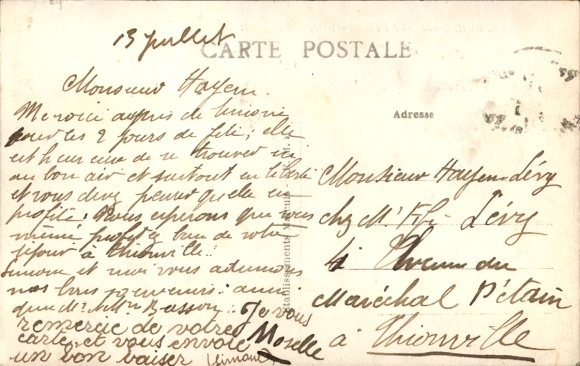 13 juillet
CARTE POSTALE
Monsieur Hayem.
Me voici auprès de Simone
pour les 2 jours de fête; elle
est heureuse de se trouver ici
au bon air et surtout en liberté
et vous devez penser qu'elle en
profite. Nous espérons que vous
même profitez bien de votre
séjour à Thionville.
Simone et moi vous adressons
nos bons souvenirs ainsi
que Mr et Mme Besson. Je vous
remercie de votre
carte et vous envoie
un bon baiser (Simone)
Adresse
Monsieur Hayem-Lévy
chez Mr Lévy
4 Avenue du
Maréchal Pétain
à Thionville
Moselle